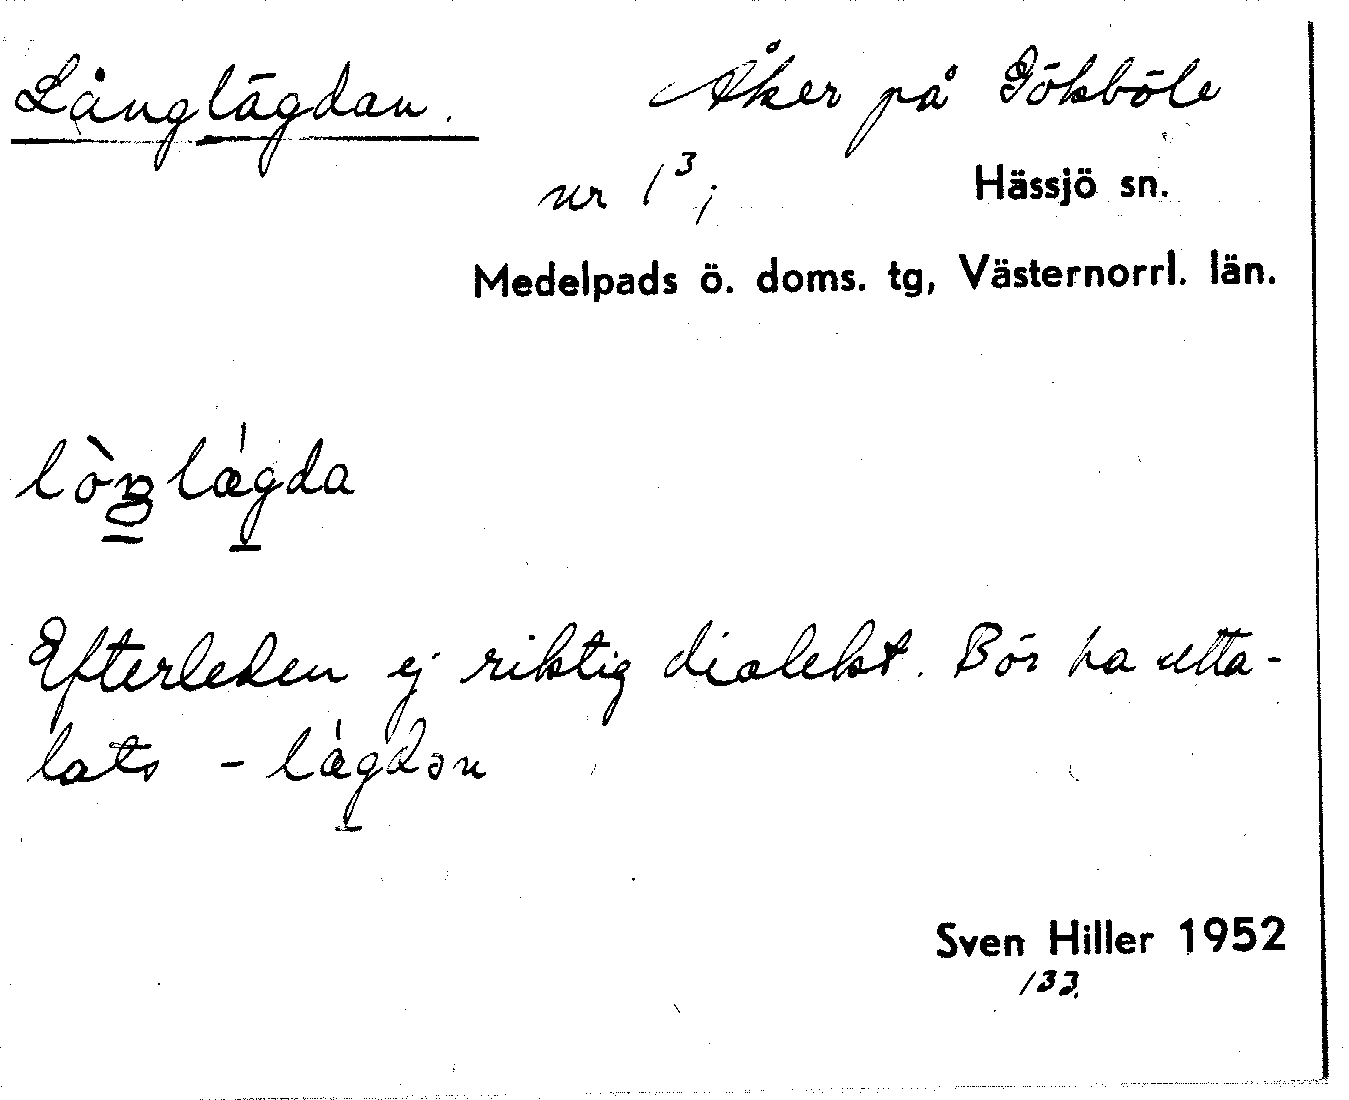 Långlägdan. Åker på Gökböle
nr 1³; Hässjö sn.
Medelpads ö. doms. tg, Västernorrl. län.
lòŋlǽgda
Efterleden ej riktig dialekt. Bör ha utta-
lats - lǽgdən
Sven Hiller 1952
133.